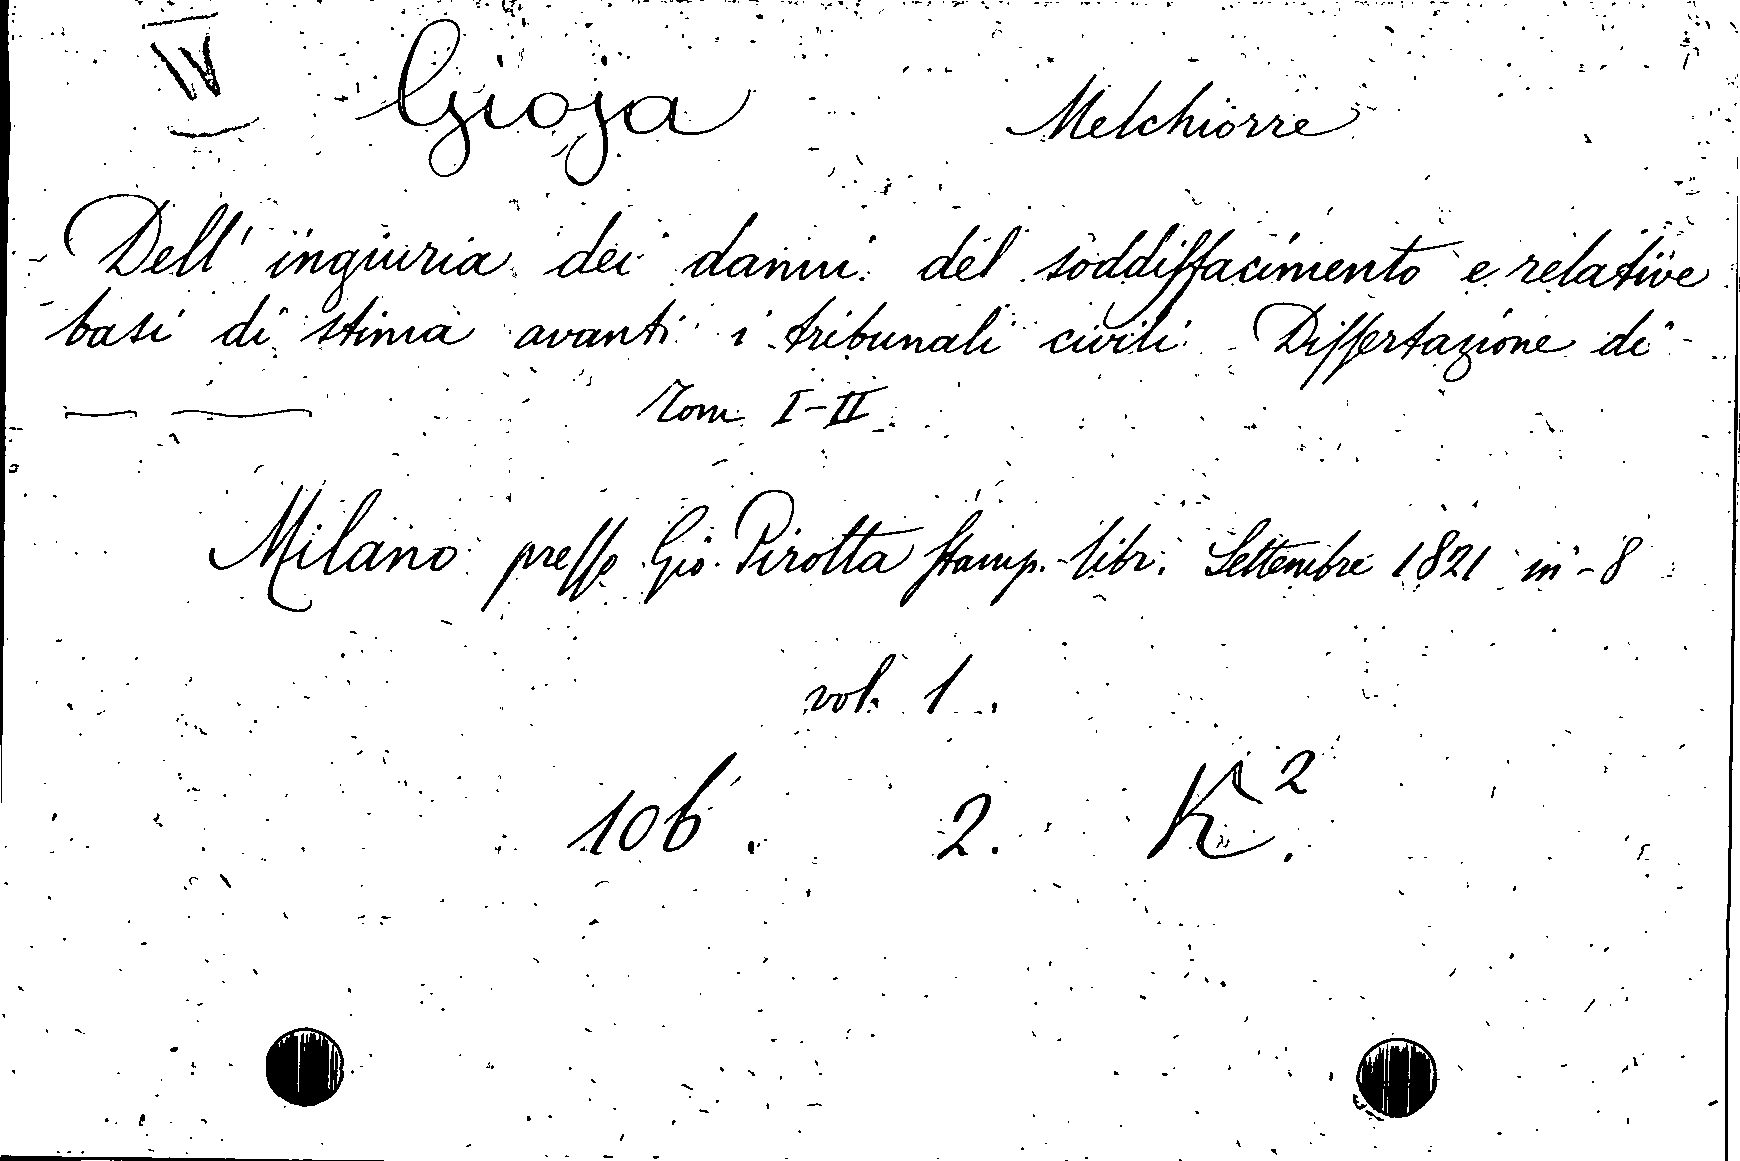 IV Gioja Melchiorre
Dell' ingiuria dei danni del soddisfacimento e relative
basi di stima avanti i tribunali civili Dissertazione di
Tom I-II
Milano presso Gio. Pirotta stamp. libr. Settembre 1821 in-8
vol. 1.
106. 2. K².